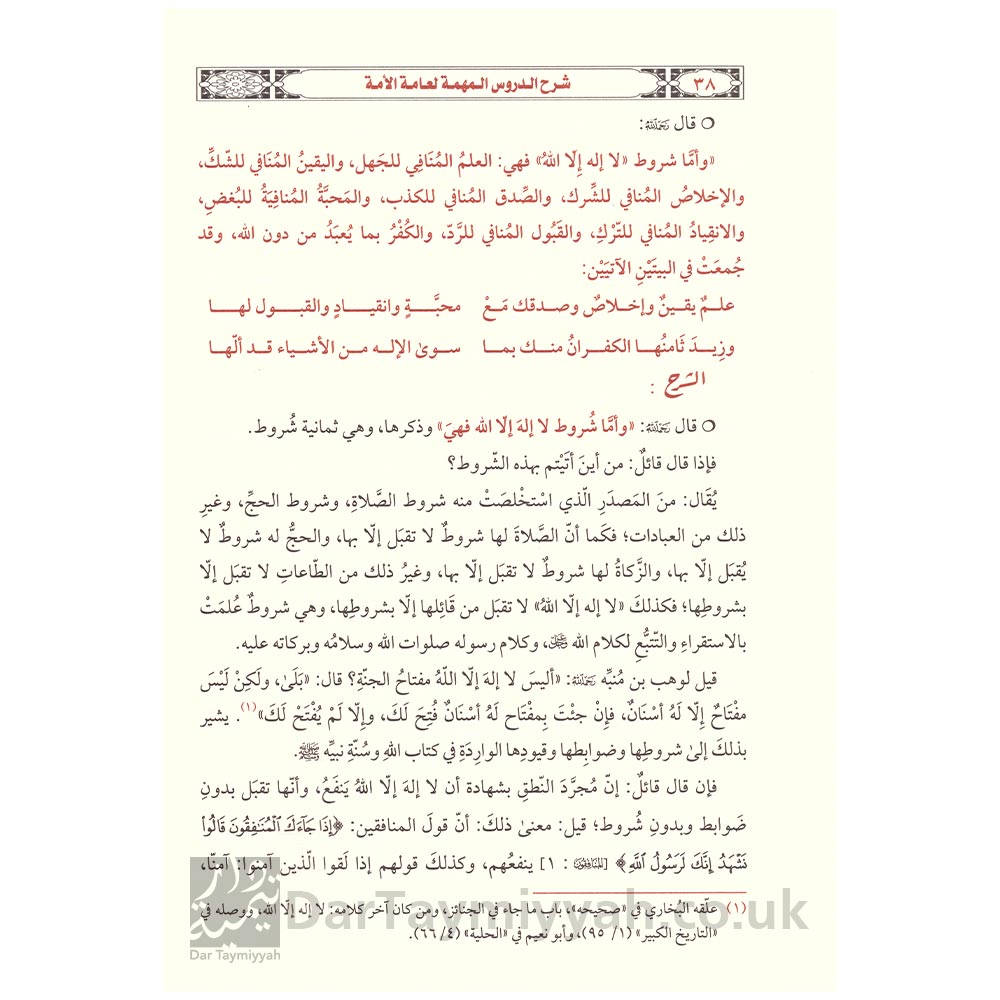 ٣٨
شرح الدروس المهمة لعامة الأمة
○ قال رَحِمَهُ اللهُ:
«وأمَّا شروط «لا إله إلّا اللهُ» فهي: العلمُ المُنَافِي للجَهل، واليقينُ المُنَافي للشّكِّ،
والإخلاصُ المُنافي للشِّرك، والصِّدق المُنافي للكذب، والمَحبَّةُ المُنافِيَةُ للبُغضِ،
والانقِيادُ المُنافي للتّرْكِ، والقَبُول المُنافي للرَّدّ، والكُفْرُ بما يُعبَدُ من دون الله، وقد
جُمعَتْ في البيتَيْنِ الآتيَيْن:
علـمٌ يقينٌ وإخلاصٌ وصدقك مَعْ محبَّـةٍ وانقيـادٍ والقبـول لهـا
وزِيـدَ ثَامنُهـا الكفـرانُ منـك بمـا سوىٰ الإله مـن الأشياء قـد ألّها
الشرح :
○ قال رَحِمَهُ اللهُ: «وأمَّا شُروط لا إلهَ إلّا الله فهيَ» وذكرها، وهي ثمانية شُروط.
فإذا قال قائلٌ: من أينَ أتَيْتم بهذه الشّروط؟
يُقَال: منَ المَصدَرِ الّذي اسْتخْلصَتْ منه شروط الصَّلاةِ، وشروط الحجِّ، وغيرِ
ذلك من العبادات؛ فكَما أنّ الصَّلاةَ لها شروطٌ لا تقبَل إلّا بها، والحجُّ له شروطٌ لا
يُقبَل إلّا بها، والزَّكاةُ لها شروطٌ لا تقبَل إلّا بها، وغيرُ ذلك من الطّاعاتِ لا تقبَل إلّا
بشروطِها؛ فكذلكَ «لا إله إلّا اللهُ» لا تقبَل من قَائلِها إلّا بشروطِها، وهي شروطٌ عُلمَتْ
بالاستقراءِ والتّتبُّعِ لكلام الله ﷻ، وكلام رسوله صلوات الله وسلامُه وبركاته عليه.
قيل لوهب بن مُنبِّه رَحِمَهُ اللهُ: «أليسَ لا إلهَ إلّا اللّهُ مفتاحُ الجنّةِ؟ قال: «بَلَىٰ، ولَكِنْ لَيْسَ
مفْتَاحٌ إلّا لَهُ أسْنَانٌ، فإنْ جئْتَ بِمفْتَاح لَهُ أسْنَانٌ فُتِحَ لَكَ، وإلّا لَمْ يُفْتَحْ لَكَ»(١). يشير
بذلكَ إلىٰ شروطِها وضوابطها وقيودِها الوارِدَةِ في كتاب اللهِ وسُنّةِ نبيِّه ﷺ.
فإن قال قائلٌ: إنّ مُجرَّدَ النّطقِ بشهادة أن لا إلهَ إلّا اللهُ يَنفَعُ، وأنّها تقبَل بدونِ
ضَوابط وبدونِ شُروط؛ قيل: معنىٰ ذلكَ: أنّ قولَ المنافقين: ﴿إِذَا جَآءَكَ ٱلْمُنَٰفِقُونَ قَالُوا۟
نَشْهَدُ إِنَّكَ لَرَسُولُ ٱللَّهِ﴾ [المنافقون: ١] ينفعُهم، وكذلكَ قولهم إذا لَقوا الّذين آمنوا: آمنّا،
(١) علّقه البُخاري في «صحيحه»، باب ما جاء في الجنائز، ومن كان آخر كلامه: لا إله إلّا الله، ووصله في
«التاريخ الكبير» (١/ ٩٥)، وأبو نعيم في «الحلية» (٤/ ٦٦).
دار تيمية
Dar Taymiyyah
DarTaymiyyah.co.uk